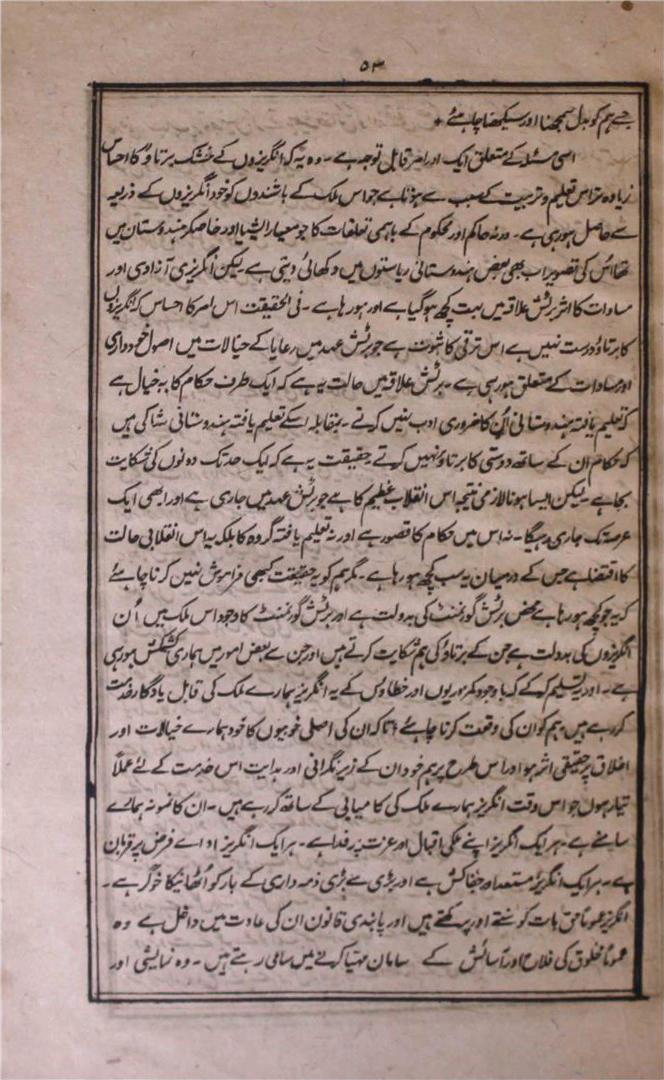 ۵۳
جسے ہم کو بدل سمجھنا اور سیکھنا چاہئے +
اسی مسئلہ کے متعلق ایک اور امر قابل توجہ ہے ۔ وہ یہ کہ انگریزوں کے خشک برتاؤ کا احساس
زیادہ تر اس تعلیم و تربیت کے سبب سے ہوتا ہے جو اس ملک کے باشندوں کو خود انگریزوں کے ذریعہ
سے حاصل ہو رہی ہے ۔ ورنہ حاکم اور محکوم کے باہمی تعلقات کا جو معیار ایشیا اور خاصکر ہندوستان میں
تھا اس کی تصویر اب بھی بعض ہندوستانی ریاستوں میں دکھائی دیتی ہے ۔ لیکن انگریزی آزادی اور
مساوات کا اثر برٹش علاقہ میں بہت کچھ ہو گیا ہے اور ہو رہا ہے ۔ فی الحقیقت اس امر کا احساس کہ انگریزوں
کا برتاؤ درست نہیں ہے اس ترقی کا ثبوت ہے جو برٹش عہد میں رعایا کے خیالات میں اصول خودداری
اور مساوات کے متعلق ہو رہی ہے ۔ برٹش علاقہ میں حالت یہ ہے کہ ایک طرف حکام کا یہ خیال ہے
کہ تعلیم یافتہ ہندوستانی اُن کا ضروری ادب نہیں کرتے ۔ بمقابلہ اسکے تعلیم یافتہ ہندوستانی شاکی ہیں
کہ حکام ان کے ساتھ دوستی کا برتاؤ نہیں کرتے حقیقت یہ ہے کہ ایک حد تک دونوں کی شکایت
بجا ہے ۔ لیکن ایسا ہونا لازمی نتیجہ اس انقلاب عظیم کا ہے جو برٹش عہد میں جاری ہے اور ابھی ایک
عرصہ تک جاری رہیگا ۔ نہ اس میں حکام کا قصور ہے اور نہ تعلیم یافتہ گروہ کا بلکہ یہ اس انقلابی حالت
کا اقتضا ہے جس کے درمیان یہ سب کچھ ہو رہا ہے ۔ مگر ہم کو یہ حقیقت کبھی فراموش نہیں کرنا چاہئے
کہ یہ جو کچھ ہو رہا ہے محض برٹش گورنمنٹ کی بدولت ہے اور برٹش گورنمنٹ کا وجود اس ملک میں اُن
انگریزوں کی بدولت ہے جن کے برتاؤ کی ہم شکایت کرتے ہیں اور جن سے بعض امور میں ہماری کشمکش ہو رہی
ہے ۔ اور یہ تسلیم کر کے کہ باوجود کمزوریوں اور خطاؤں کے یہ انگریز ہمارے ملک کی قابل یادگار خدمت
کر رہے ہیں ہم کو ان کی وقعت کرنا چاہئے تاکہ ان کی اصلی خوبیوں کا خود ہمارے خیالات اور
اخلاق پر حقیقی اثر ہو اور اس طرح پر ہم خود ان کے زیر نگرانی اور ہدایت اس خدمت کے لئے عملاً
تیار ہوں جو اس وقت انگریز ہمارے ملک کی کامیابی کے ساتھ کر رہے ہیں ۔ ان کا نمونہ ہمارے
سامنے ہے ۔ ہر ایک انگریز اپنے ملکی اقبال اور عزت پر فدا ہے ۔ ہر ایک انگریز ادائے فرض پر قربان
ہے ۔ ہر ایک انگریز مستعد اور جفاکش ہے اور بڑی سے بڑی ذمہ داری کے بار کو اُٹھانیکا خوگر ہے ۔
انگریز عموماً حق بات کو سنتے اور پرکھتے ہیں اور پابندی قانون ان کی عادت میں داخل ہے وہ
عموماً مخلوق کی فلاح اور آسائش کے سامان مہیا کرنے میں ساعی رہتے ہیں ۔ وہ نمایشی اور